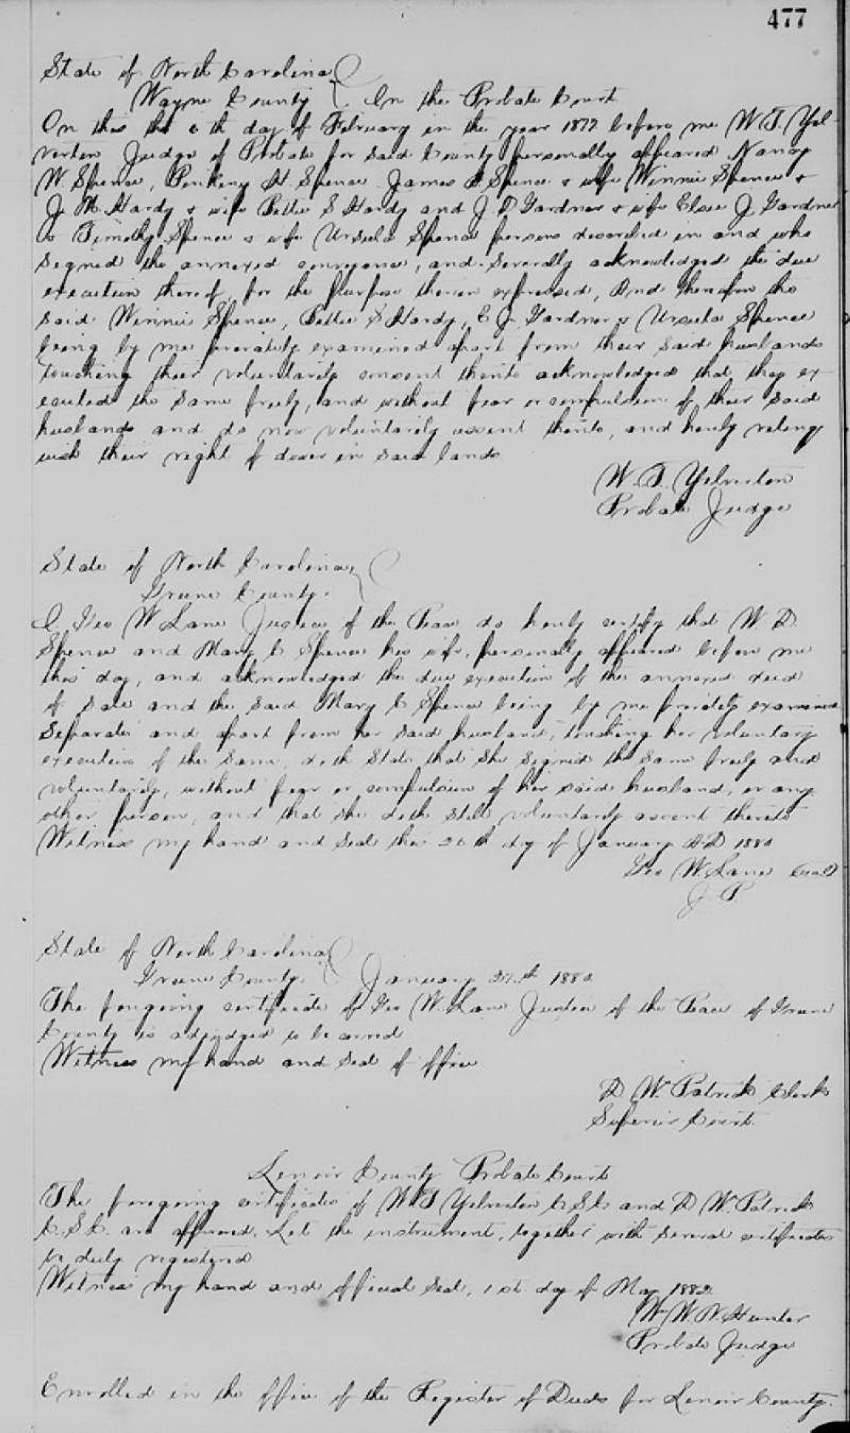 477
State of North Carolina
Wayne County } In the Probate Court
On this the 6th day of February in the year 1877 before me W. T. Yel
verton Judge of Probate for said County personally appeared Nancy
W Spence, H Spence James Spence & wife Winnie Spence &
J. M. Hardy & wife Bettie S Hardy and J. D Gardner & wife Elsie J. Gardner
& Timothy Spence & wife Ursula Spence persons described in and who
signed the annexed conveyance, and severally acknowledged the due
execution thereof, for the purpose therein expressed, And therefore the
said Winnie Spence, Bettie S Hardy, E J. Gardner & Ursula Spence
being by me privately examined apart from their said husbands
touching their voluntarily consent thereto acknowledged that they ex-
ecuted the same freely, and without fear or compulsion of their said
husbands and do now voluntarily assent thereto, and hereby relinqu
uish their right of dower in said lands
W. T. Yelverton
Probate Judge
State of North Carolina
Greene County.
I. Geo W Lane Justice of the Peace do hereby certify that W. D.
Spence and Mary C Spence his wife, personally appeared before me
this day, and acknowledged the due execution of the annexed deed
of Sale and the said Mary C Spence being by me privately examined
separate and apart from her said husband, touching her voluntary
execution of the same, doth State that she signed the same freely and
voluntarily, without fear or compulsion of her said husband, or any
other person, and that she doth still voluntarily assent thereto
Witness my hand and seal this 26th day of January AD 1880
Geo W. Lane (Seal)
J. P.
State of North Carolina
Greene County. January 27th 1880
The foregoing certificate of Geo W. Lane Justice of the Peace of Greene
County is adjudged to be correct
Witness my hand and seal of office
D. W. Patrick Clerk
Superior Court
Lenoir County Probate Court
The foregoing certificates of W T Yelverton C. S. C. and D W. Patrick
C. S. C. are affirmed. Let the instrument, together with several certificates
be duly registered
Witness my hand and official seal, 1st day of May 1882
Wm W. N. Hunter
Probate Judge
Enrolled in the office of the Register of Deeds for Lenoir County.